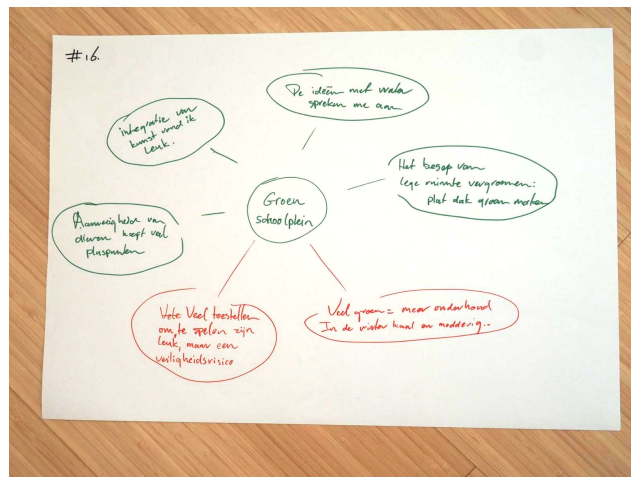 #16.
De ideën met water
spreken me aan
integratie van
kunst vond ik
leuk.
Het besef van
lege ruimte vergroenen:
plat dak groen maken
Groen
schoolplein
Aanwezigheid van
dieren heeft veel
pluspunten
Veel toestellen
om te spelen zijn
leuk, maar een
veiligheidsrisico
Veel groen = meer onderhoud
In de winter kaal en modderig..